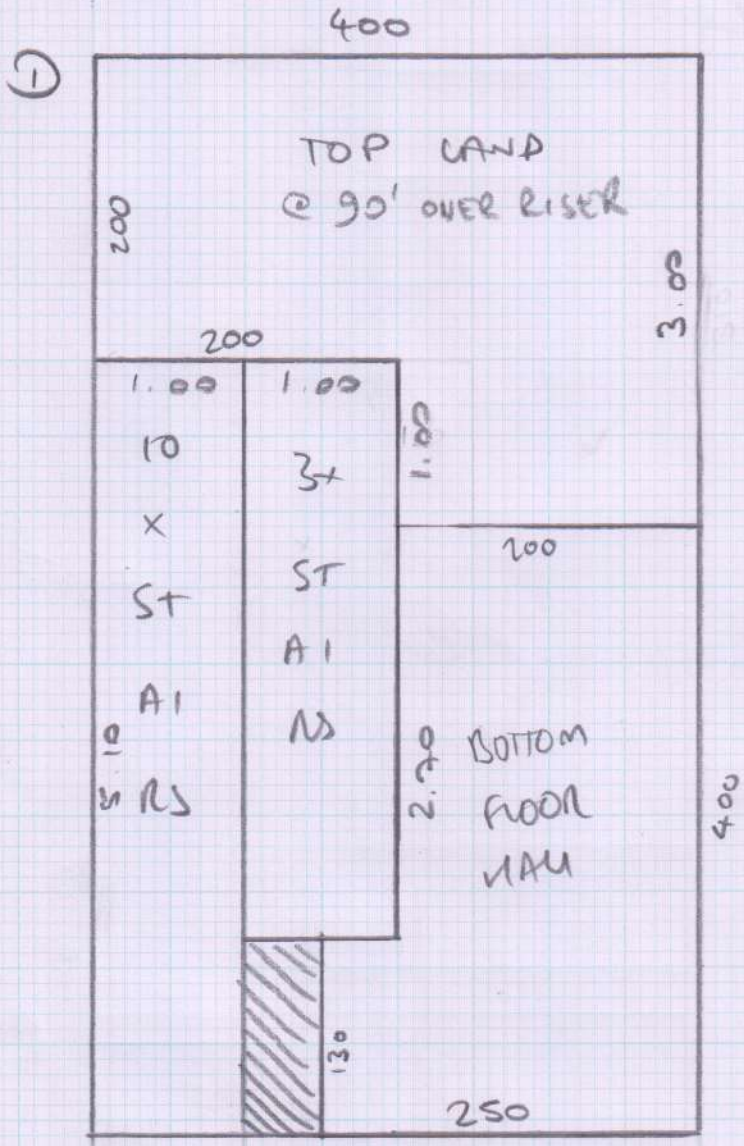 ①
400
TOP LAND
@ 90' OVER RISER
200
3.00
200
1.00
1.00
1.00
10
X
ST
AI
RS
3x
ST
AI
RS
200
5.10
2.70
BOTTOM
FLOOR
HALL
400
130
250